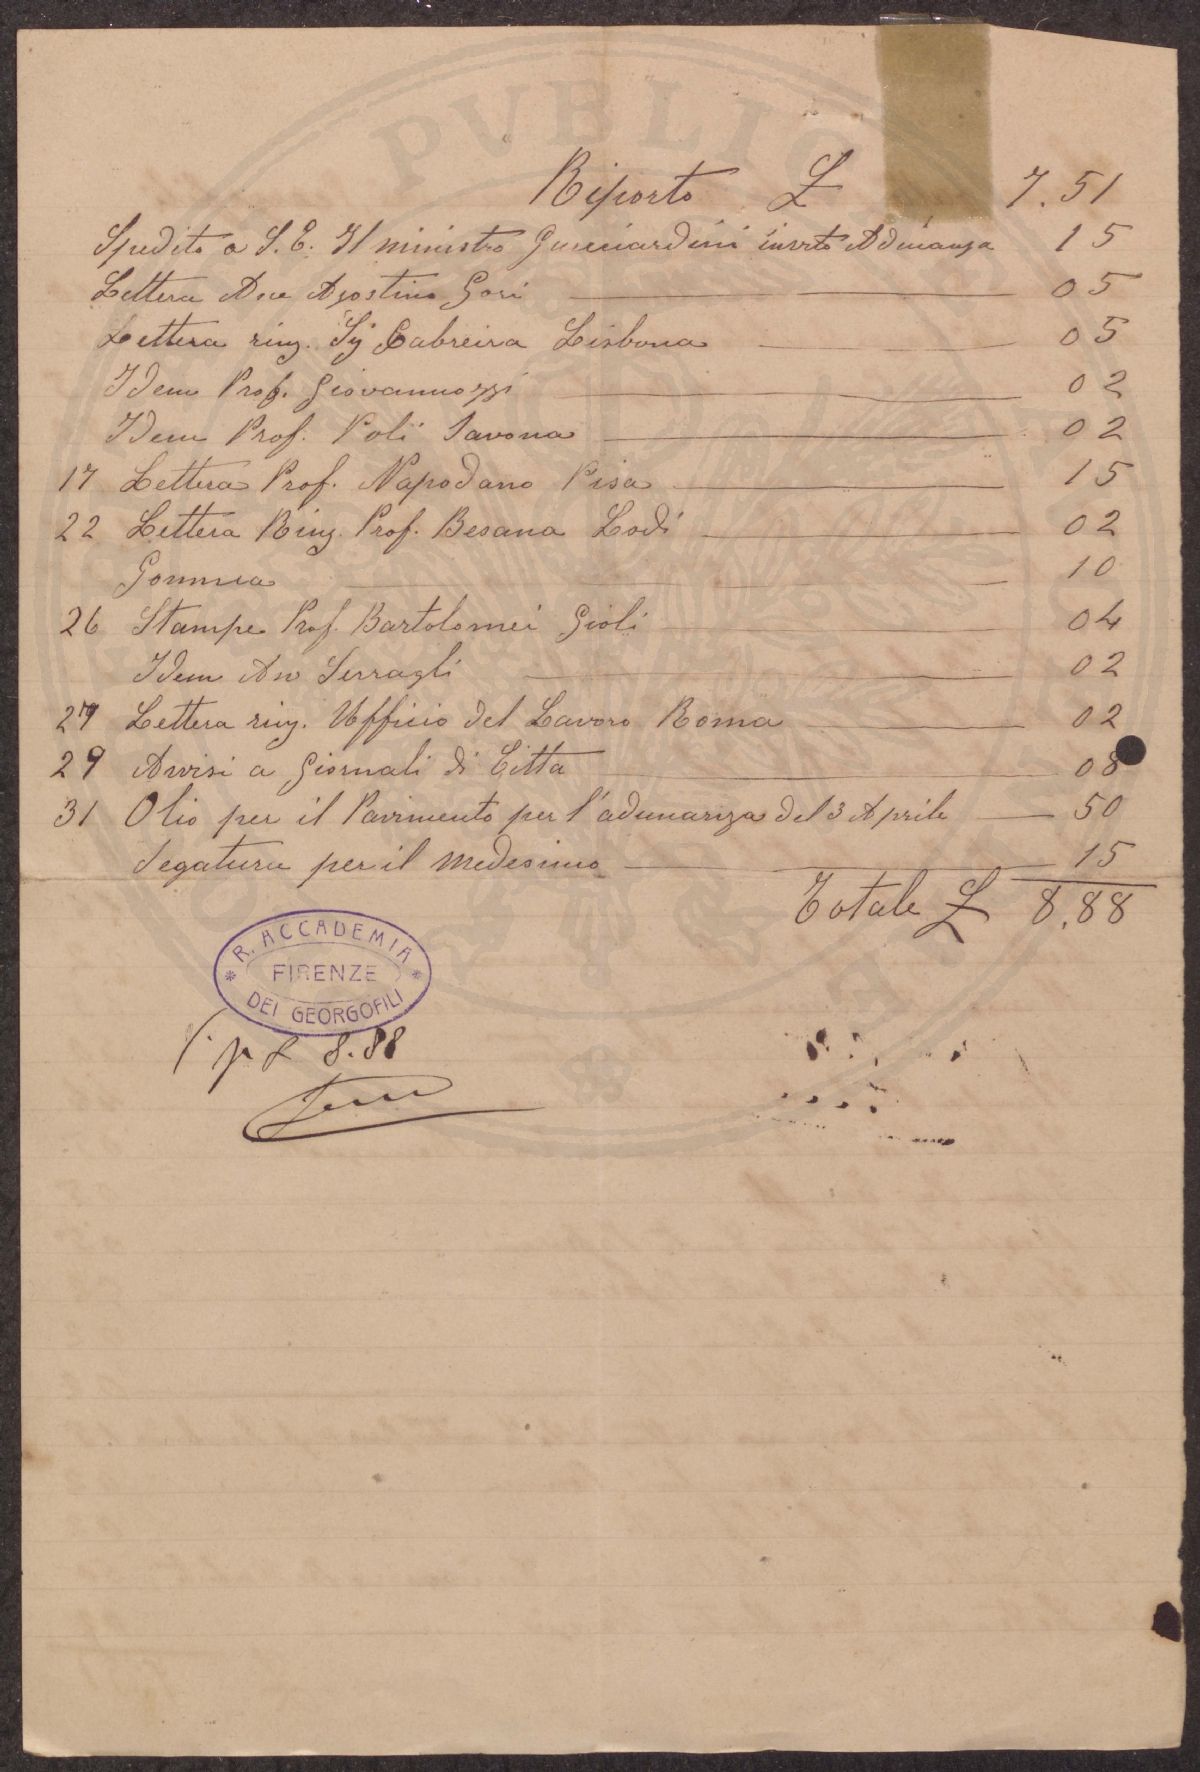 Riporto £ 7.51
Spedito a S. E. Il ministro Guicciardini invito Adunanza 15
Lettera Avv Agostino Gori 05
Lettera ring. Sig Cabreira Lisbona 05
Idem Prof. Giovannozzi 02
Idem Prof. Poli Savona 02
17 Lettera Prof. Napodano Pisa 15
22 Lettera Ring. Prof. Besana Lodi 02
Gomma 10
26 Stampe Prof. Bartolomei Gioli 04
Idem Avv Serragli 02
27 Lettera ring. Ufficio del Lavoro Roma 02
29 Avvisi a Giornali di Citta 08
31 Olio per il Pavimento per l'adunanza del 3 Aprile 50
Segatura per il medesimo 15
Totale £ 8.88
R. ACCADEMIA
FIRENZE
DEI GEORGOFILI
£ 8.88
PVBLIC